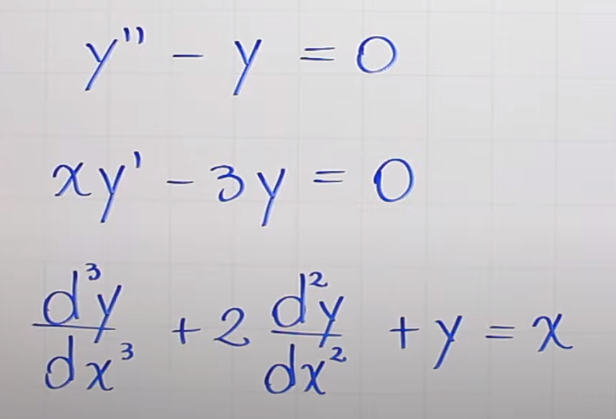 y'' - y = 0
xy' - 3y = 0
d³y/dx³ + 2 d²y/dx² + y = x